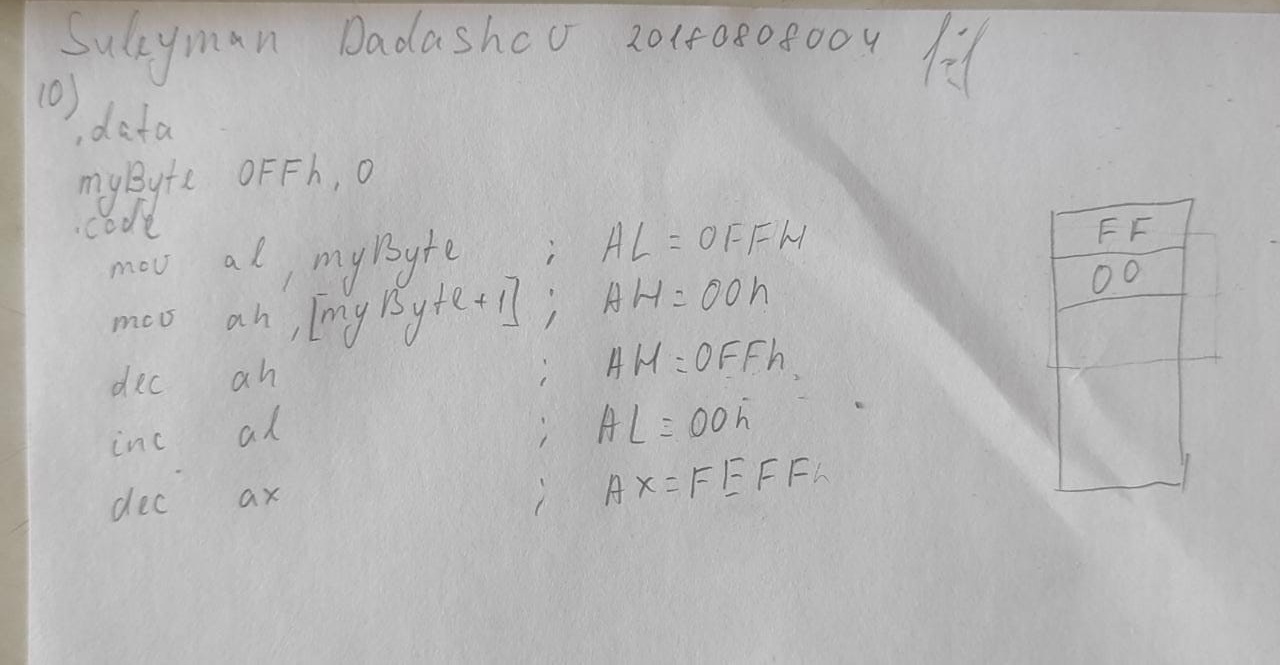 Suleyman Dadashov 20180808004
10)
.data
myByte 0FFh, 0
.code
mov al, myByte ; AL = 0FFH
mov ah, [myByte+1] ; AH = 00h
dec ah ; AH = 0FFh
inc al ; AL = 00h
dec ax ; AX = FEFFh
FF
00